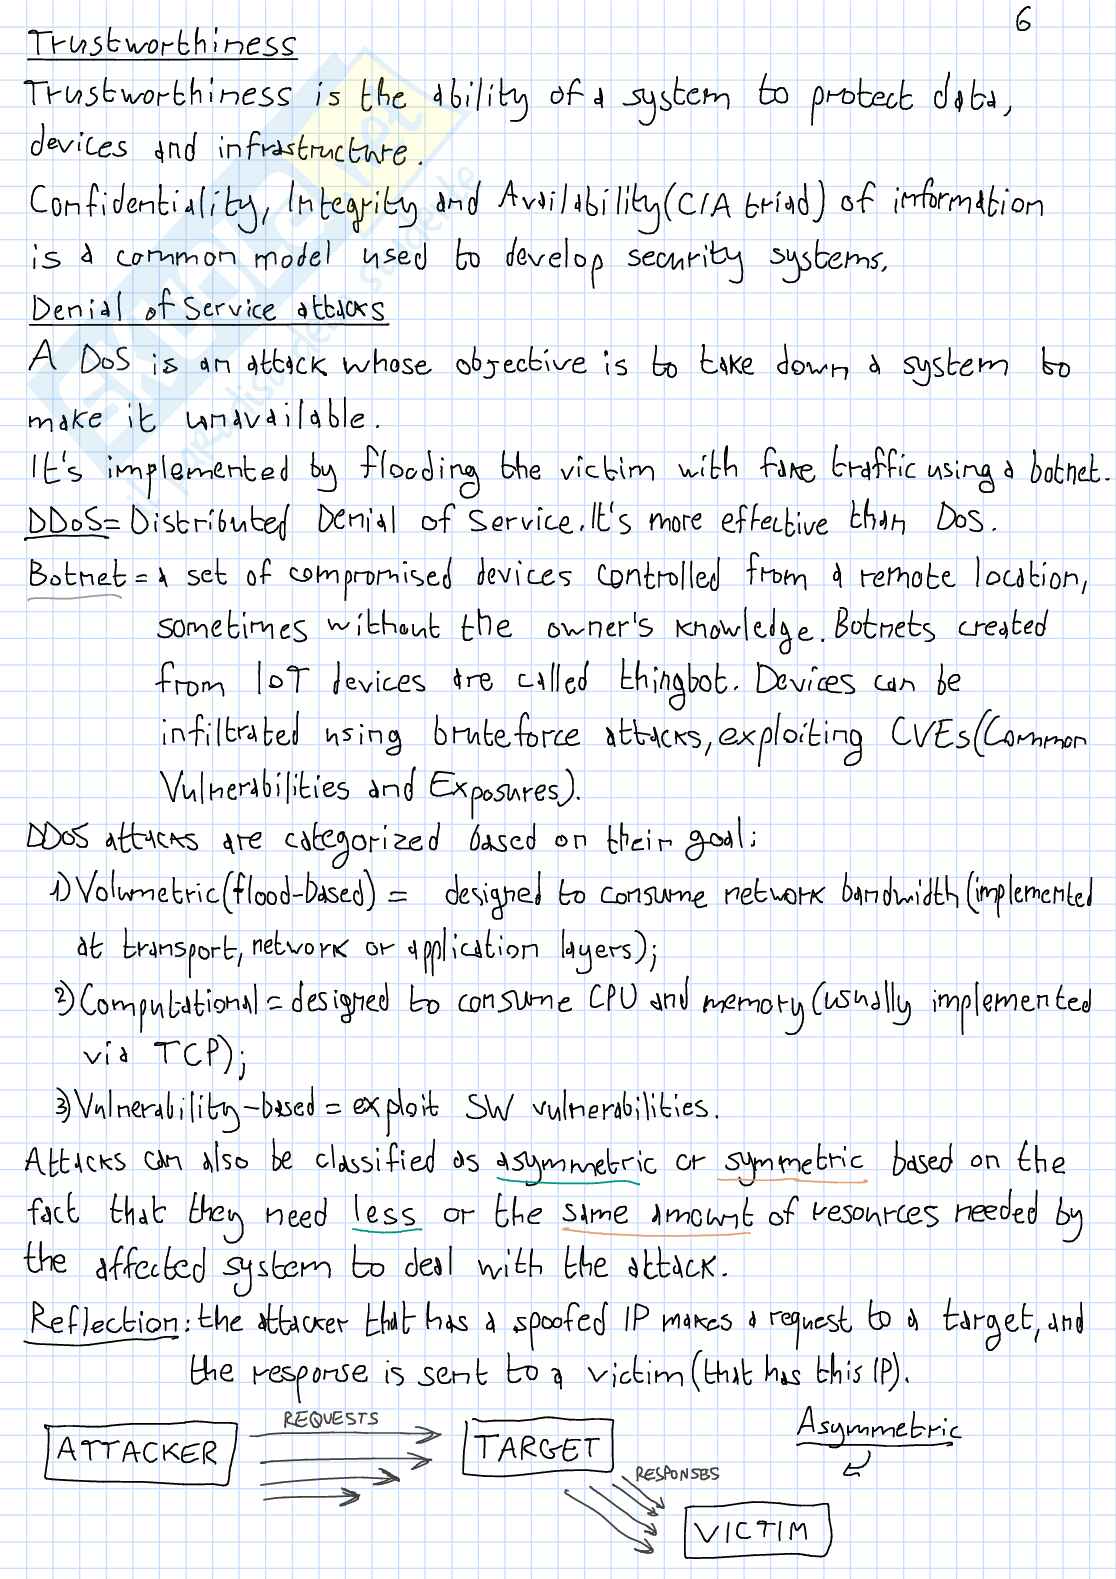 6
Trustworthiness
Trustworthiness is the ability of a system to protect data,
devices and infrastructure.
Confidentiality, Integrity and Availability (CIA triad) of information
is a common model used to develop security systems.
Denial of Service attacks
A DoS is an attack whose objective is to take down a system to
make it unavailable.
It's implemented by flooding the victim with fake traffic using a botnet.
DDoS = Distributed Denial of Service. It's more effective than DoS.
Botnet = a set of compromised devices controlled from a remote location,
sometimes without the owner's knowledge. Botnets created
from IoT devices are called thingbot. Devices can be
infiltrated using bruteforce attacks, exploiting CVEs (Common
Vulnerabilities and Exposures).
DDoS attacks are categorized based on their goal:
1) Volumetric (flood-based) = designed to consume network bandwidth (implemented
at transport, network or application layers);
2) Computational = designed to consume CPU and memory (usually implemented
via TCP);
3) Vulnerability-based = exploit SW vulnerabilities.
Attacks can also be classified as asymmetric or symmetric based on the
fact that they need less or the same amount of resources needed by
the affected system to deal with the attack.
Reflection: the attacker that has a spoofed IP makes a request to a target, and
the response is sent to a victim (that has this IP).
REQUESTS
ATTACKER
TARGET
Asymmetric
RESPONSES
VICTIM